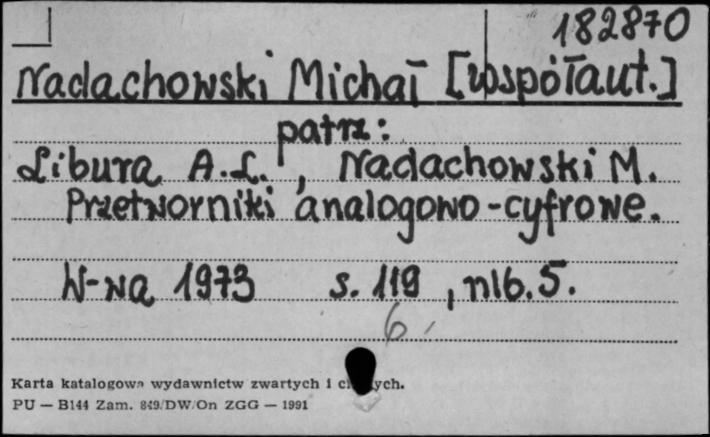 182870
Nadachowski Michał [współaut.]
patrz:
Libura A.L., Nadachowski M.
Przetworniki analogowo-cyfrowe.
W-wa 1973 s. 119, nlb. 5.
6
Karta katalogowa wydawnictw zwartych i
PU — B144 Zam. 849/DW/On ZGG — 1991